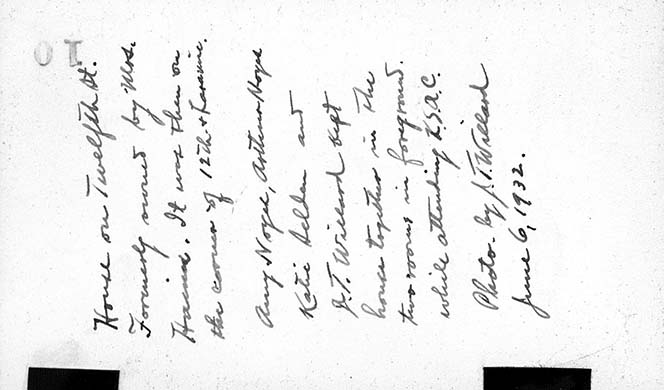 House on Twelfth St.
Formerly owned by Mrs.
Haines. It was then on
the corner of 12th & Laramie.
Amy Noyes, Arthur Noyes
Katie Selden and
J.T. Willard kept
house together in the
two rooms in foreground.
while attending K.S.A.C.
Photo. by J.T. Willard
June 6, 1932.